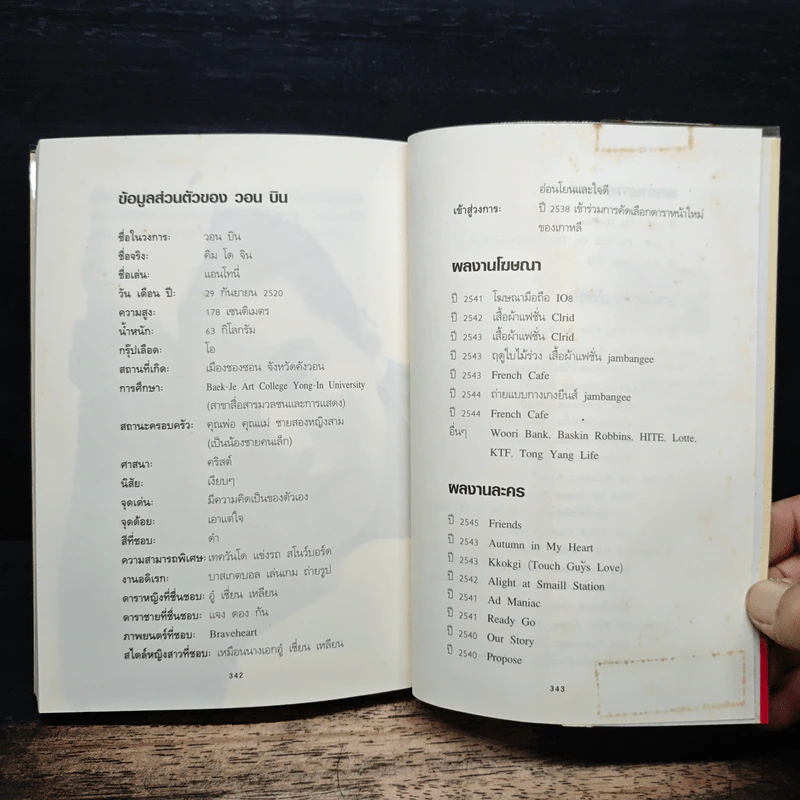 ข้อมูลส่วนตัวของ วอน บิน
ชื่อในวงการ: วอน บิน
ชื่อจริง: คิม โด จิน
ชื่อเล่น: แอนโทนี่
วัน เดือน ปี: 29 กันยายน 2520
ความสูง: 178 เซนติเมตร
น้ำหนัก: 63 กิโลกรัม
กรุ๊ปเลือด: โอ
สถานที่เกิด: เมืองชองซอน จังหวัดคังวอน
การศึกษา: Baek-Je Art College Yong-In University
(สาขาสื่อสารมวลชนและการแสดง)
สถานะครอบครัว: คุณพ่อ คุณแม่ ชายสองหญิงสาม
(เป็นน้องชายคนเล็ก)
ศาสนา: คริสต์
นิสัย: เงียบๆ
จุดเด่น: มีความคิดเป็นของตัวเอง
จุดด้อย: เอาแต่ใจ
สีที่ชอบ: ดำ
ความสามารถพิเศษ: เทควันโด แข่งรถ สโนว์บอร์ด
งานอดิเรก: บาสเกตบอล เล่นเกม ถ่ายรูป
ดาราหญิงที่ชื่นชอบ: อู๋ เชี่ยน เหลียน
ดาราชายที่ชื่นชอบ: แจง ดอง กัน
ภาพยนตร์ที่ชอบ: Braveheart
สไตล์หญิงสาวที่ชอบ: เหมือนนางเอกอู๋ เชี่ยน เหลียน
342
อ่อนโยนและใจดี
เข้าสู่วงการ: ปี 2538 เข้าร่วมการคัดเลือกดาราหน้าใหม่
ของเกาหลี
ผลงานโฆษณา
ปี 2541 โฆษณามือถือ IO8
ปี 2542 เสื้อผ้าแฟชั่น Clrid
ปี 2543 เสื้อผ้าแฟชั่น Clrid
ปี 2543 ฤดูใบไม้ร่วง เสื้อผ้าแฟชั่น jambangee
ปี 2543 French Cafe
ปี 2544 ถ่ายแบบกางเกงยีนส์ jambangee
ปี 2544 French Cafe
อื่นๆ Woori Bank, Baskin Robbins, HITE, Lotte,
KTF, Tong Yang Life
ผลงานละคร
ปี 2545 Friends
ปี 2543 Autumn in My Heart
ปี 2543 Kkokgi (Touch Guy's Love)
ปี 2542 Alight at Smaill Station
ปี 2541 Ad Maniac
ปี 2541 Ready Go
ปี 2540 Our Story
ปี 2540 Propose
343